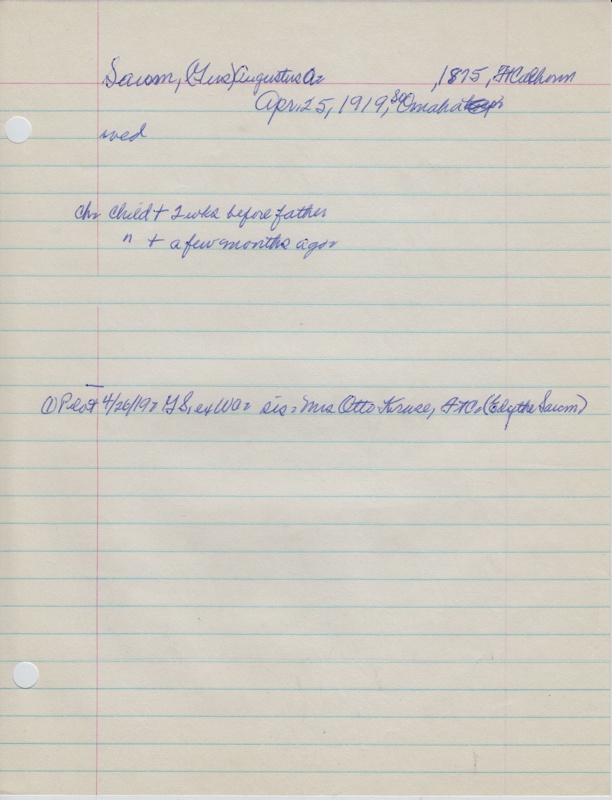 Saum, (Gus) Augustus A= ,1875, Ft Calhoun
Apr. 25, 1919, So Omaha
wed
ch= child + 2 wks before father
" + a few months ago=
① Pilot 4/26/19= FS, ex WA= sis= Mrs Otto Kruse, FtC= (Edythe Saum)